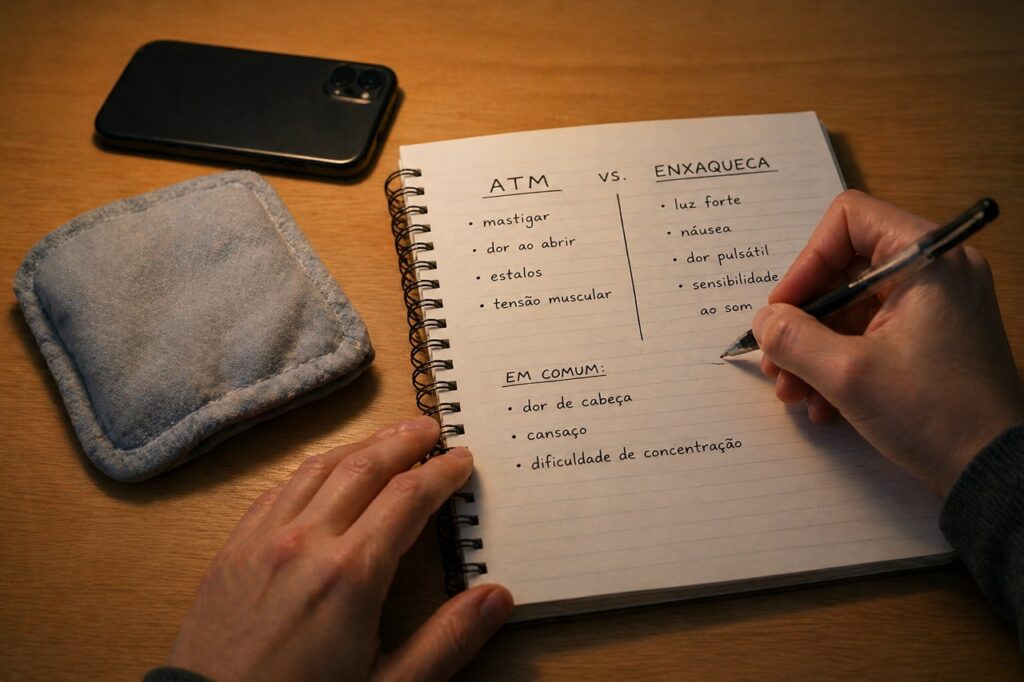 ATM vs. ENXAQUECA
• mastigar
• dor ao abrir
• estalos
• tensão muscular
• luz forte
• náusea
• dor pulsátil
• sensibilidade
ao som
EM COMUM:
• dor de cabeça
• cansaço
• dificuldade de concentração